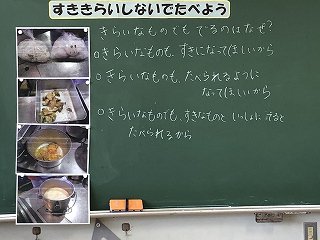 すききらいしないでたべよう
きらいなものでも でるのはなぜ?
○きらいなものも、すきになってほしいから
○きらいなものも、たべられるように
なってほしいから
○きらいなものでも、すきなものと いっしょに でると
たべられるから